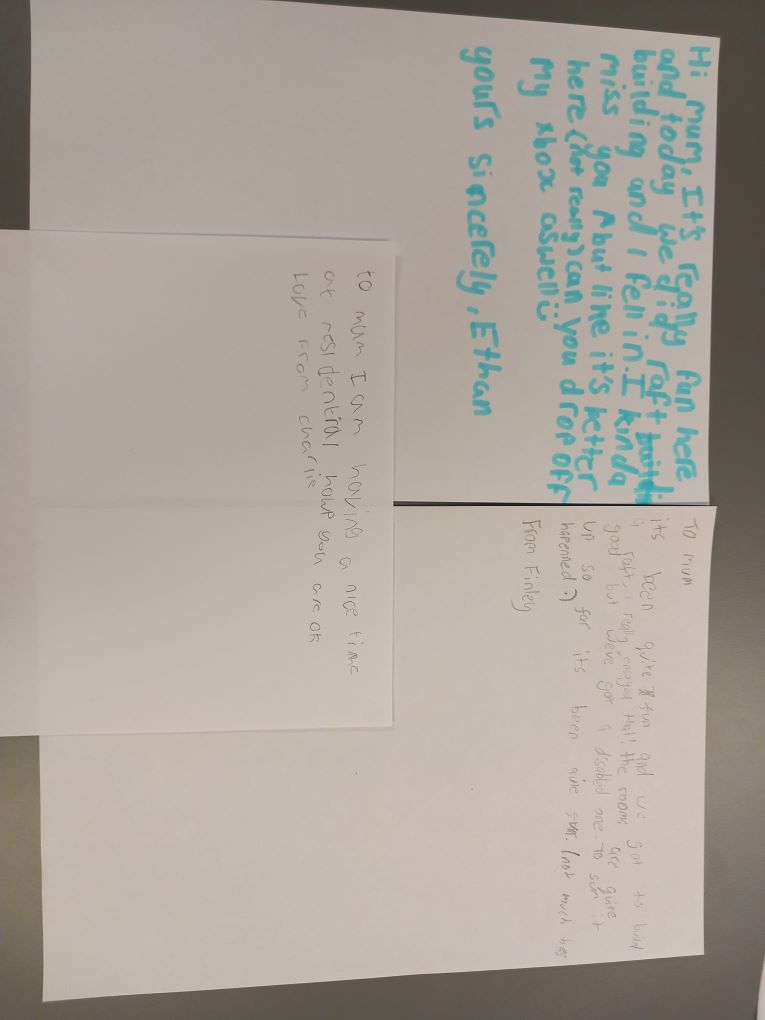 Hi mum, It's really fun here
and today we did raft buildi
building and I fell in. I kinda
miss you ^ but like it's better
here (not really) can you drop off
my xbox aswell :)
yours sincerely, Ethan
to mum I am having a nice time
at residential howp you are ok
Love From charlie
To mum
its been quite fun and we got to build
a raft, i really enoyed that! the rooms are quite
good but weve got a disabled one. To sum it
up so far its been quite fun. (not much has
hapenned.)
From Finley